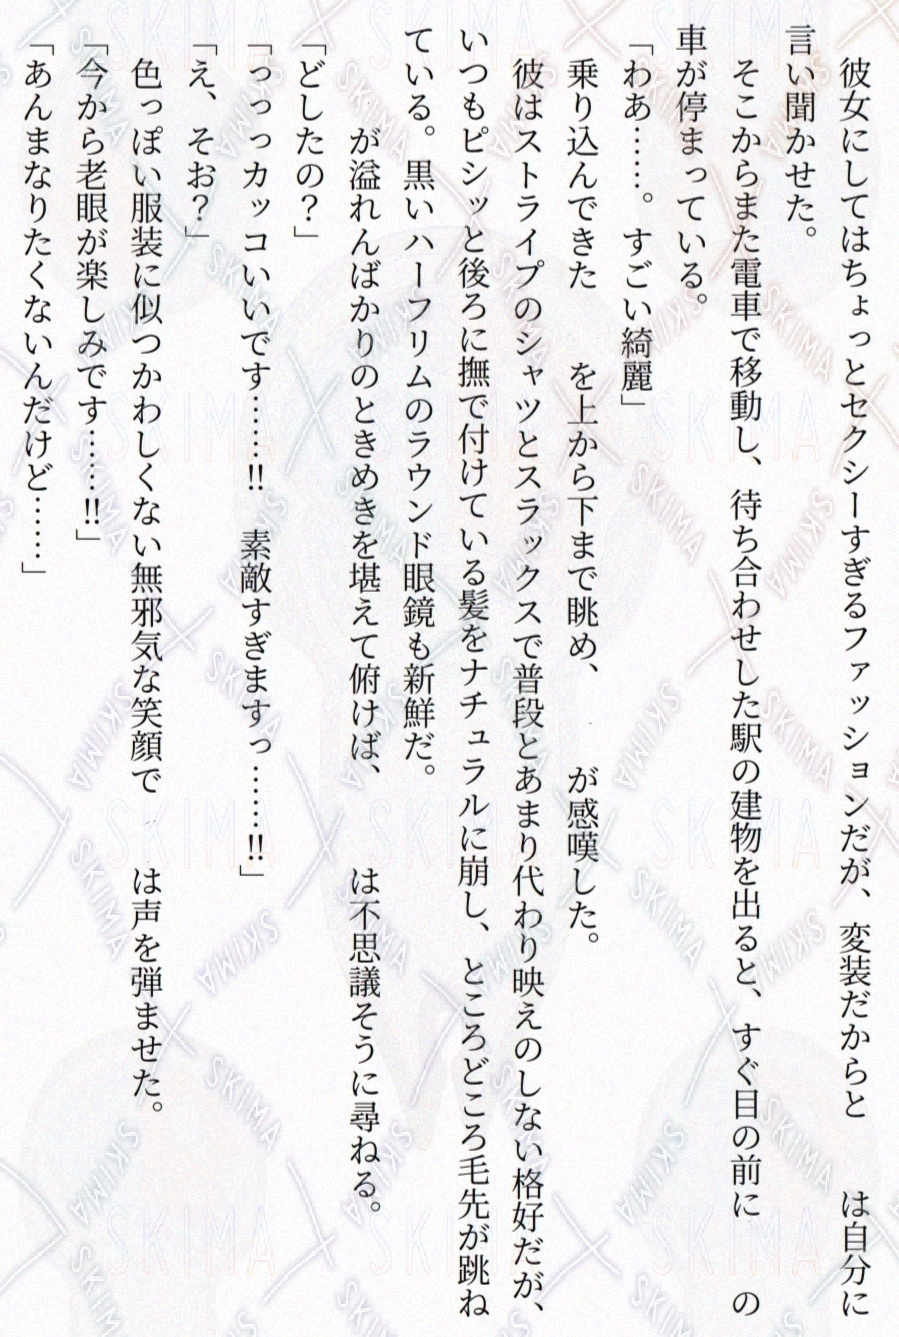 彼女にしてはちょっとセクシーすぎるファッションだが、変装だからと　　は自分に
言い聞かせた。
そこからまた電車で移動し、待ち合わせした駅の建物を出ると、すぐ目の前に　　の
車が停まっている。
「わあ……。すごい綺麗」
乗り込んできた　　を上から下まで眺め、　　が感嘆した。
彼はストライプのシャツとスラックスで普段とあまり代わり映えのしない格好だが、
いつもピシッと後ろに撫で付けている髪をナチュラルに崩し、ところどころ毛先が跳ね
ている。黒いハーフリムのラウンド眼鏡も新鮮だ。
　　が溢れんばかりのときめきを堪えて俯けば、　　は不思議そうに尋ねる。
「どしたの？」
「っっっカッコいいです……!!　素敵すぎますっ……!!」
「え、そお？」
色っぽい服装に似つかわしくない無邪気な笑顔で　　は声を弾ませた。
「今から老眼が楽しみです……!!」
「あんまなりたくないんだけど……」
SKIMA